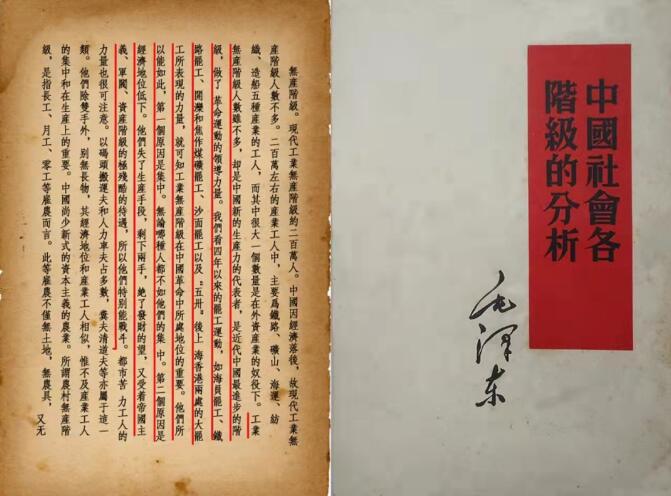 無產階級。現代工業無產階級約二百萬人。中國因經濟落後，故現代工業無
產階級人數不多。二百萬左右的產業工人中，主要爲鐵路、礦山、海運、紡
織、造船五種產業的工人，而其中很大一個數量是在外資產業的奴役下。工業
無產階級人數雖不多，却是中國新的生產力的代表者，是近代中國最進步的階
級，做了 革命運動的領導力量。我們看四年以來的罷工運動，如海員罷工、鐵
路罷工、開灤和焦作煤礦罷工、沙面罷工以及“五卅”後上 海香港兩處的大罷
工所表現的力量，就可知工業無產階級在中國革命中所處地位的重要。他們所
以能如此，第一個原因是集中。無論哪種人都不如他們的集 中。第二個原因是
經濟地位低下。他們失了生產手段，剩下兩手，絶了發財的望，又受着帝國主
義、軍閥、資產階級的極殘酷的待遇，所以他們特別能戰斗。都市苦 力工人的
力量也很可注意。以碼頭搬運夫和人力車夫占多數，糞夫清道夫等亦屬于這一
類。他們除雙手外，別無長物，其經濟地位和產業工人相似，惟不及產業工人
的集中和在生產上的重要。中國尚少新式的資本主義的農業。所謂農村無產階
級，是指長工、月工、零工等雇農而言。此等雇農不僅無土地，無農具， 又无
中國社會各
階級的分析
毛澤东